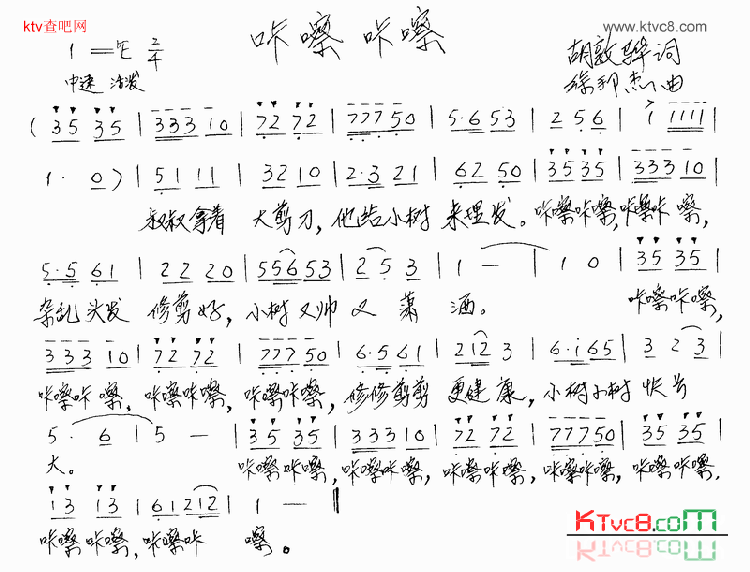 ktv查吧网
www.ktvc8.com
咔嚓咔嚓
1=E 2/4
中速 活发
胡敦骅词
曲
( 35 35 | 333 10 | 72 72 | 777 50 | 5·6 53 | 2 56 | i iiii |
1· 0 ) | 51 11 | 32 10 | 2·3 21 | 62 50 | 35 35 | 333 10 |
叔叔拿着 大剪刀,他给小树 来理发。咔嚓咔嚓,咔嚓咔 嚓,
5·5 61 | 22 20 | 556 53 | 2 5 3 | 1 — | 1 0 | 35 35 |
杂乱头发 修剪好,小树又帅又 萧 洒。 咔嚓咔嚓,
333 10 | 72 72 | 777 50 | 6·5 61 | 2 12 3 | 6·i 65 | 3 2 3 |
咔嚓咔 嚓,咔嚓咔嚓,咔嚓咔嚓,修修剪剪 更健 康,小树小树 快长
5· 6 | 5 — | 35 35 | 333 10 | 72 72 | 777 50 | 35 35 |
大。 咔嚓咔嚓,咔嚓咔嚓,咔嚓咔嚓,咔嚓咔嚓,咔嚓咔嚓,
i3 i3 | 61 212 | 1 — ‖
咔嚓咔嚓,咔嚓咔 嚓。
KTvc8.com